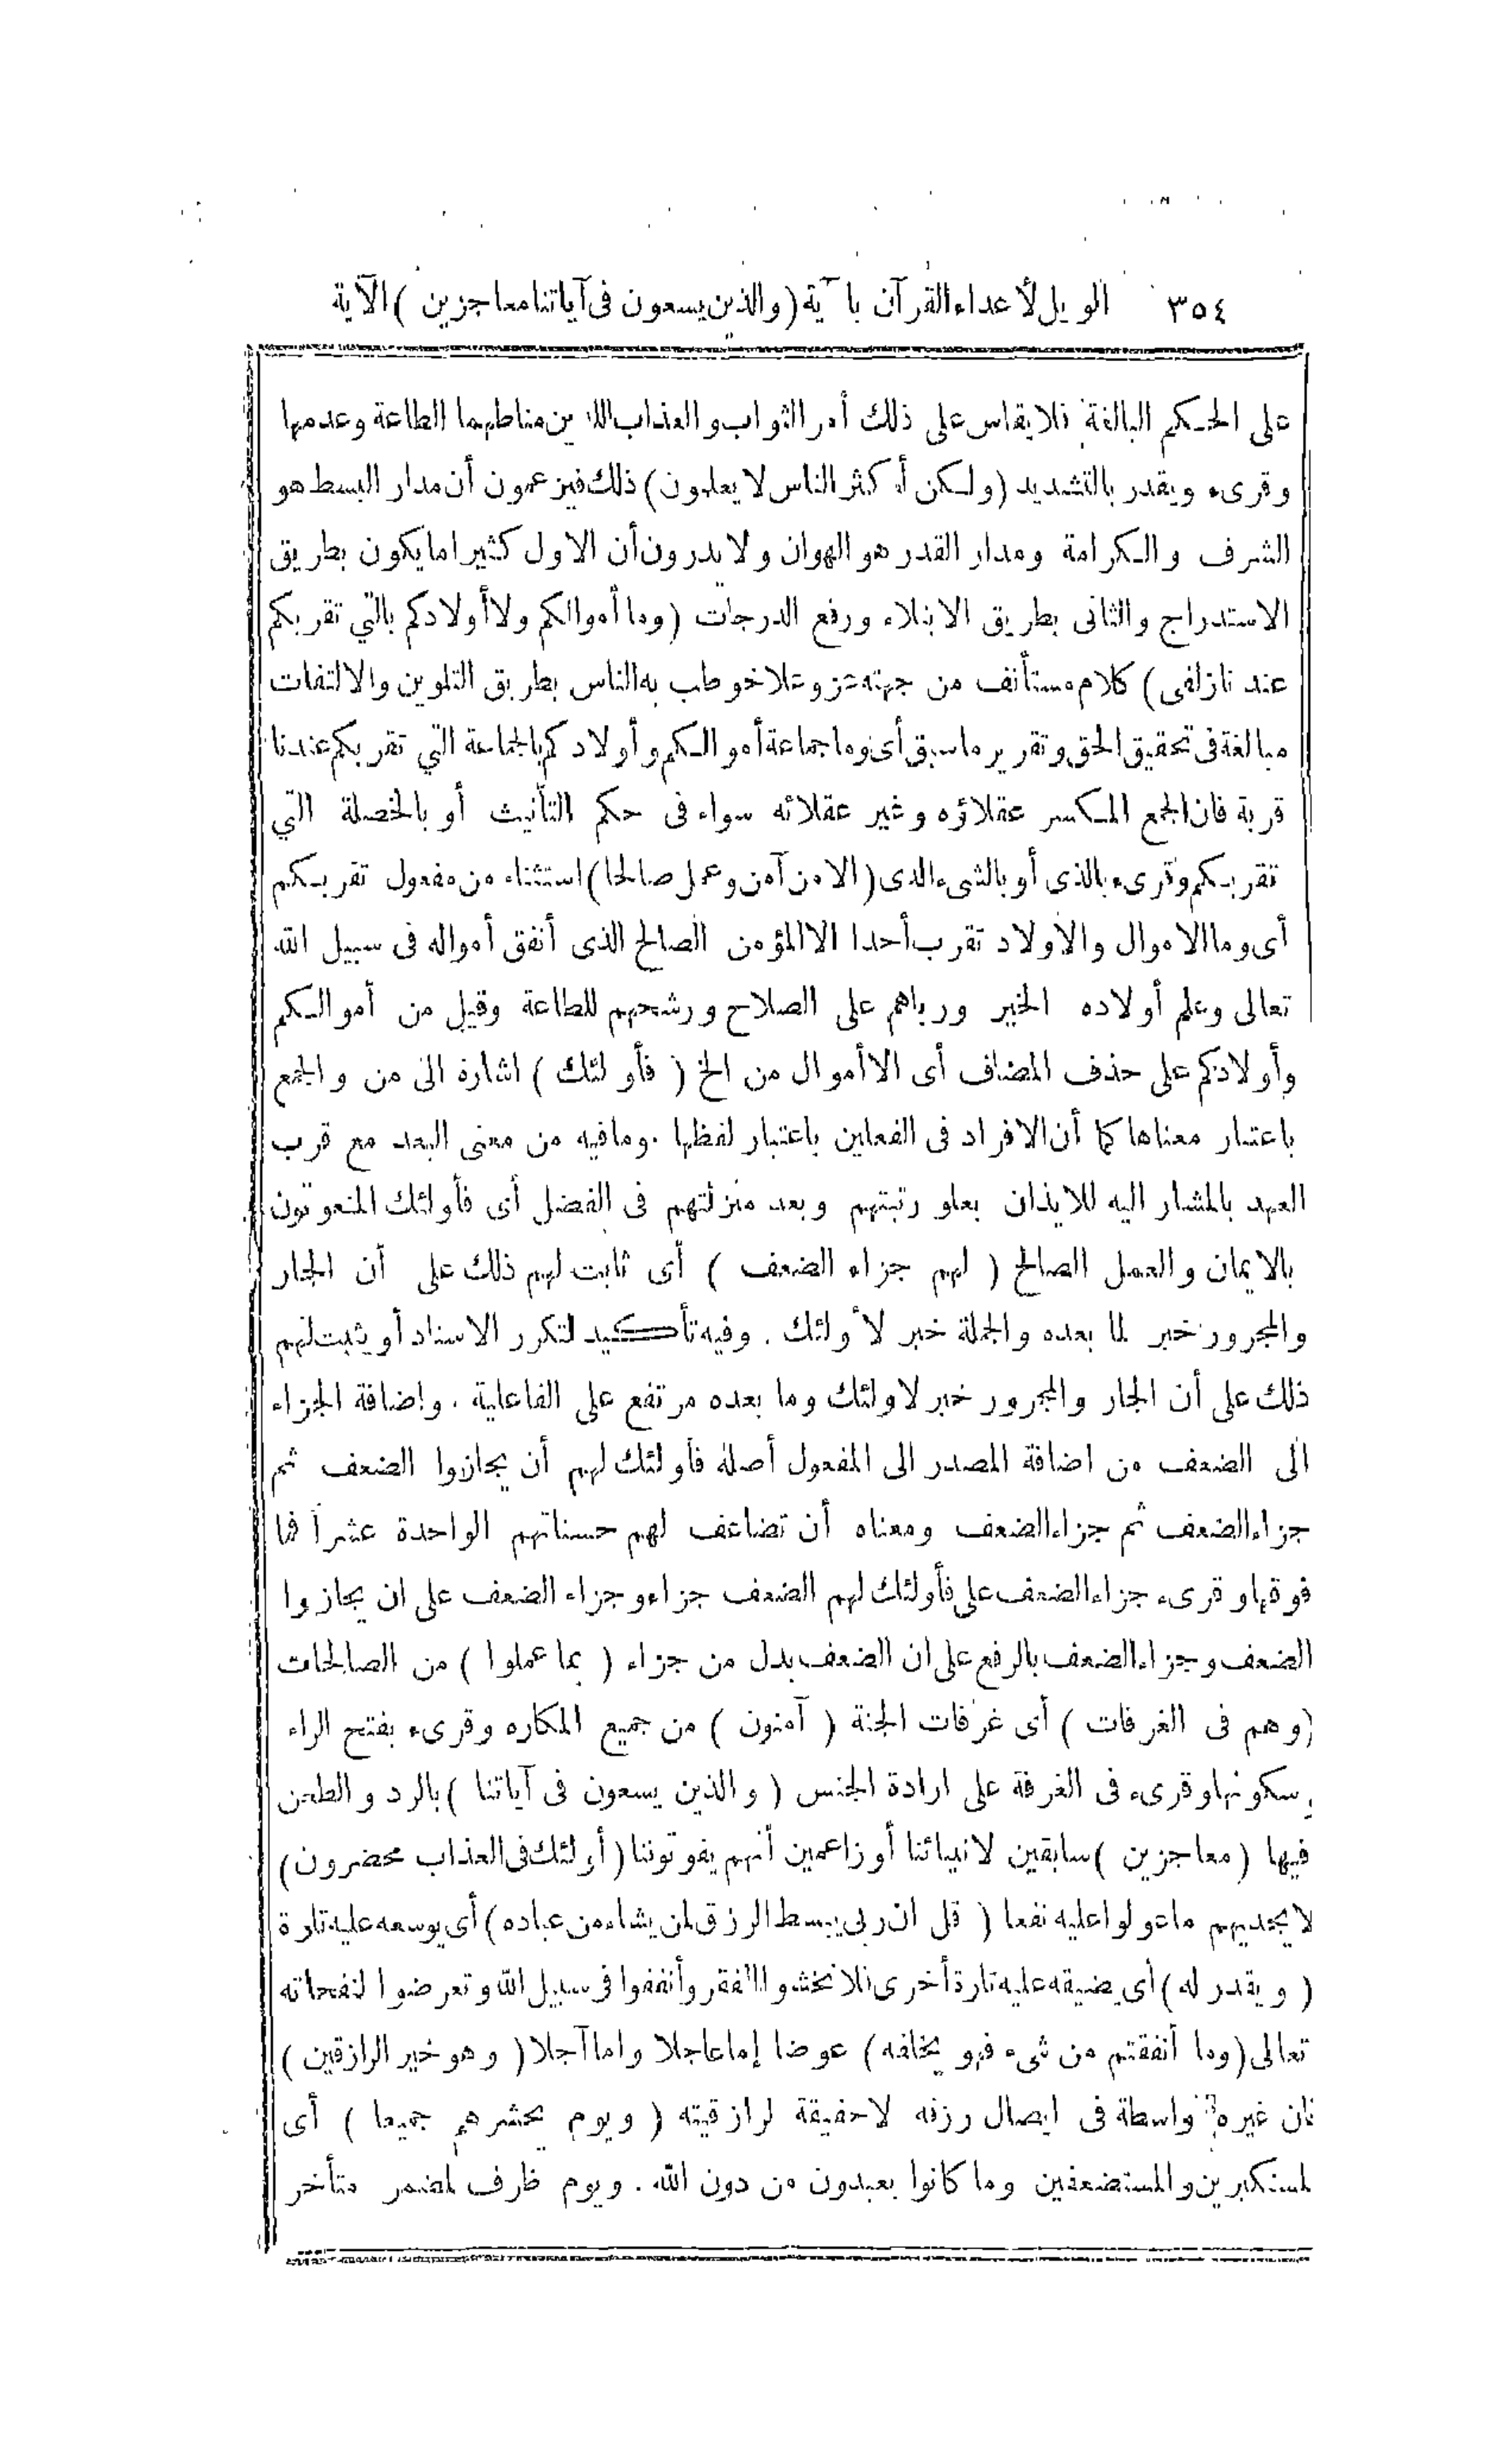 ٣٥٤ الويل لأعداء القرآن بآية (والذين يسعون فى آياتنا معاجزين) الآية
على الحكم البالغة فلا يقاس على ذلك أمر الثواب والعذاب اللذين مناطهما الطاعة وعدمها
وقرىء ويقدر بالتشديد (ولكن أكثر الناس لا يعلمون) ذلك فيزعمون أن مدار البسط هو
الشرف والكرامة ومدار القدر هو الهوان ولا يدرون أن الاول كثيرا ما يكون بطريق
الاستدراج والثانى بطريق الابتلاء ورفع الدرجات (وما أموالكم ولا أولادكم بالتي تقربكم
عندنا زلفى) كلام مستأنف من جهته عز وعلا خوطب به الناس بطريق التلوين والالتفات
مبالغة فى تحقيق الحق وتقرير ما سبق أى وما جماعة أموالكم وأولادكم بالجماعة التي تقربكم عندنا
قربة فان الجمع المكسر عقلاؤه وغير عقلائه سواء فى حكم التأنيث أو بالخصلة التي
تقربكم وقرىء بالذى أو بالشىء الذى (الا من آمن وعمل صالحا) استثناء من مفعول تقربكم
أى وما الاموال والاولاد تقرب أحدا الا المؤمن الصالح الذى أنفق أمواله فى سبيل الله
تعالى وعلم أولاده الخير ورباهم على الصلاح ورشحهم للطاعة وقيل من أموالكم
وأولادكم على حذف المضاف أى الا أموال من الخ (فأولئك) اشارة الى من والجمع
باعتبار معناها كما أن الافراد فى الفعلين باعتبار لفظها . وما فيه من معنى البعد مع قرب
العهد بالمشار اليه للايذان بعلو رتبتهم وبعد منزلتهم فى الفضل أى فأولئك المنعوتون
بالايمان والعمل الصالح (لهم جزاء الضعف) أى ثابت لهم ذلك على أن الجار
والمجرور خبر لما بعده والجملة خبر لأولئك . وفيه تأكيد لتكرر الاسناد أو يثبت لهم
ذلك على أن الجار والمجرور خبر لاولئك وما بعده مرتفع على الفاعلية . واضافة الجزاء
الى الضعف من اضافة المصدر الى المفعول أصله فأولئك لهم أن يجازوا الضعف ثم
جزاء الضعف ثم جزاء الضعف ومعناه أن تضاعف لهم حسناتهم الواحدة عشرا فما
فوقها وقرىء جزاء الضعف على فأولئك لهم الضعف جزاء وجزاء الضعف على ان يجازوا
الضعف وجزاء الضعف بالرفع على ان الضعف بدل من جزاء (بما عملوا) من الصالحات
(وهم فى الغرفات) أى غرفات الجنة (آمنون) من جميع المكاره وقرىء بفتح الراء
وسكونها وقرىء فى الغرفة على ارادة الجنس (والذين يسعون فى آياتنا) بالرد والطعن
فيها (معاجزين) سابقين لانبيائنا أو زاعمين أنهم يفوتوننا (أولئك فى العذاب محضرون)
لا يجديهم ما عولوا عليه نفعا (قل ان ربى يبسط الرزق لمن يشاء من عباده) أى يوسعه عليه تارة
(ويقدر له) أى يضيقه عليه تارة أخرى فلا تخشوا الفقر وأنفقوا فى سبيل الله وتعرضوا لنفحاته
تعالى (وما أنفقتم من شىء فهو يخلفه) عوضا إما عاجلا واما آجلا (وهو خير الرازقين)
فان غيره واسطة فى ايصال رزقه لا حقيقة لرازقيته (ويوم يحشرهم جميعا) أى
لمستكبرين والمستضعفين وما كانوا يعبدون من دون الله . ويوم ظرف لمضمر متأخر